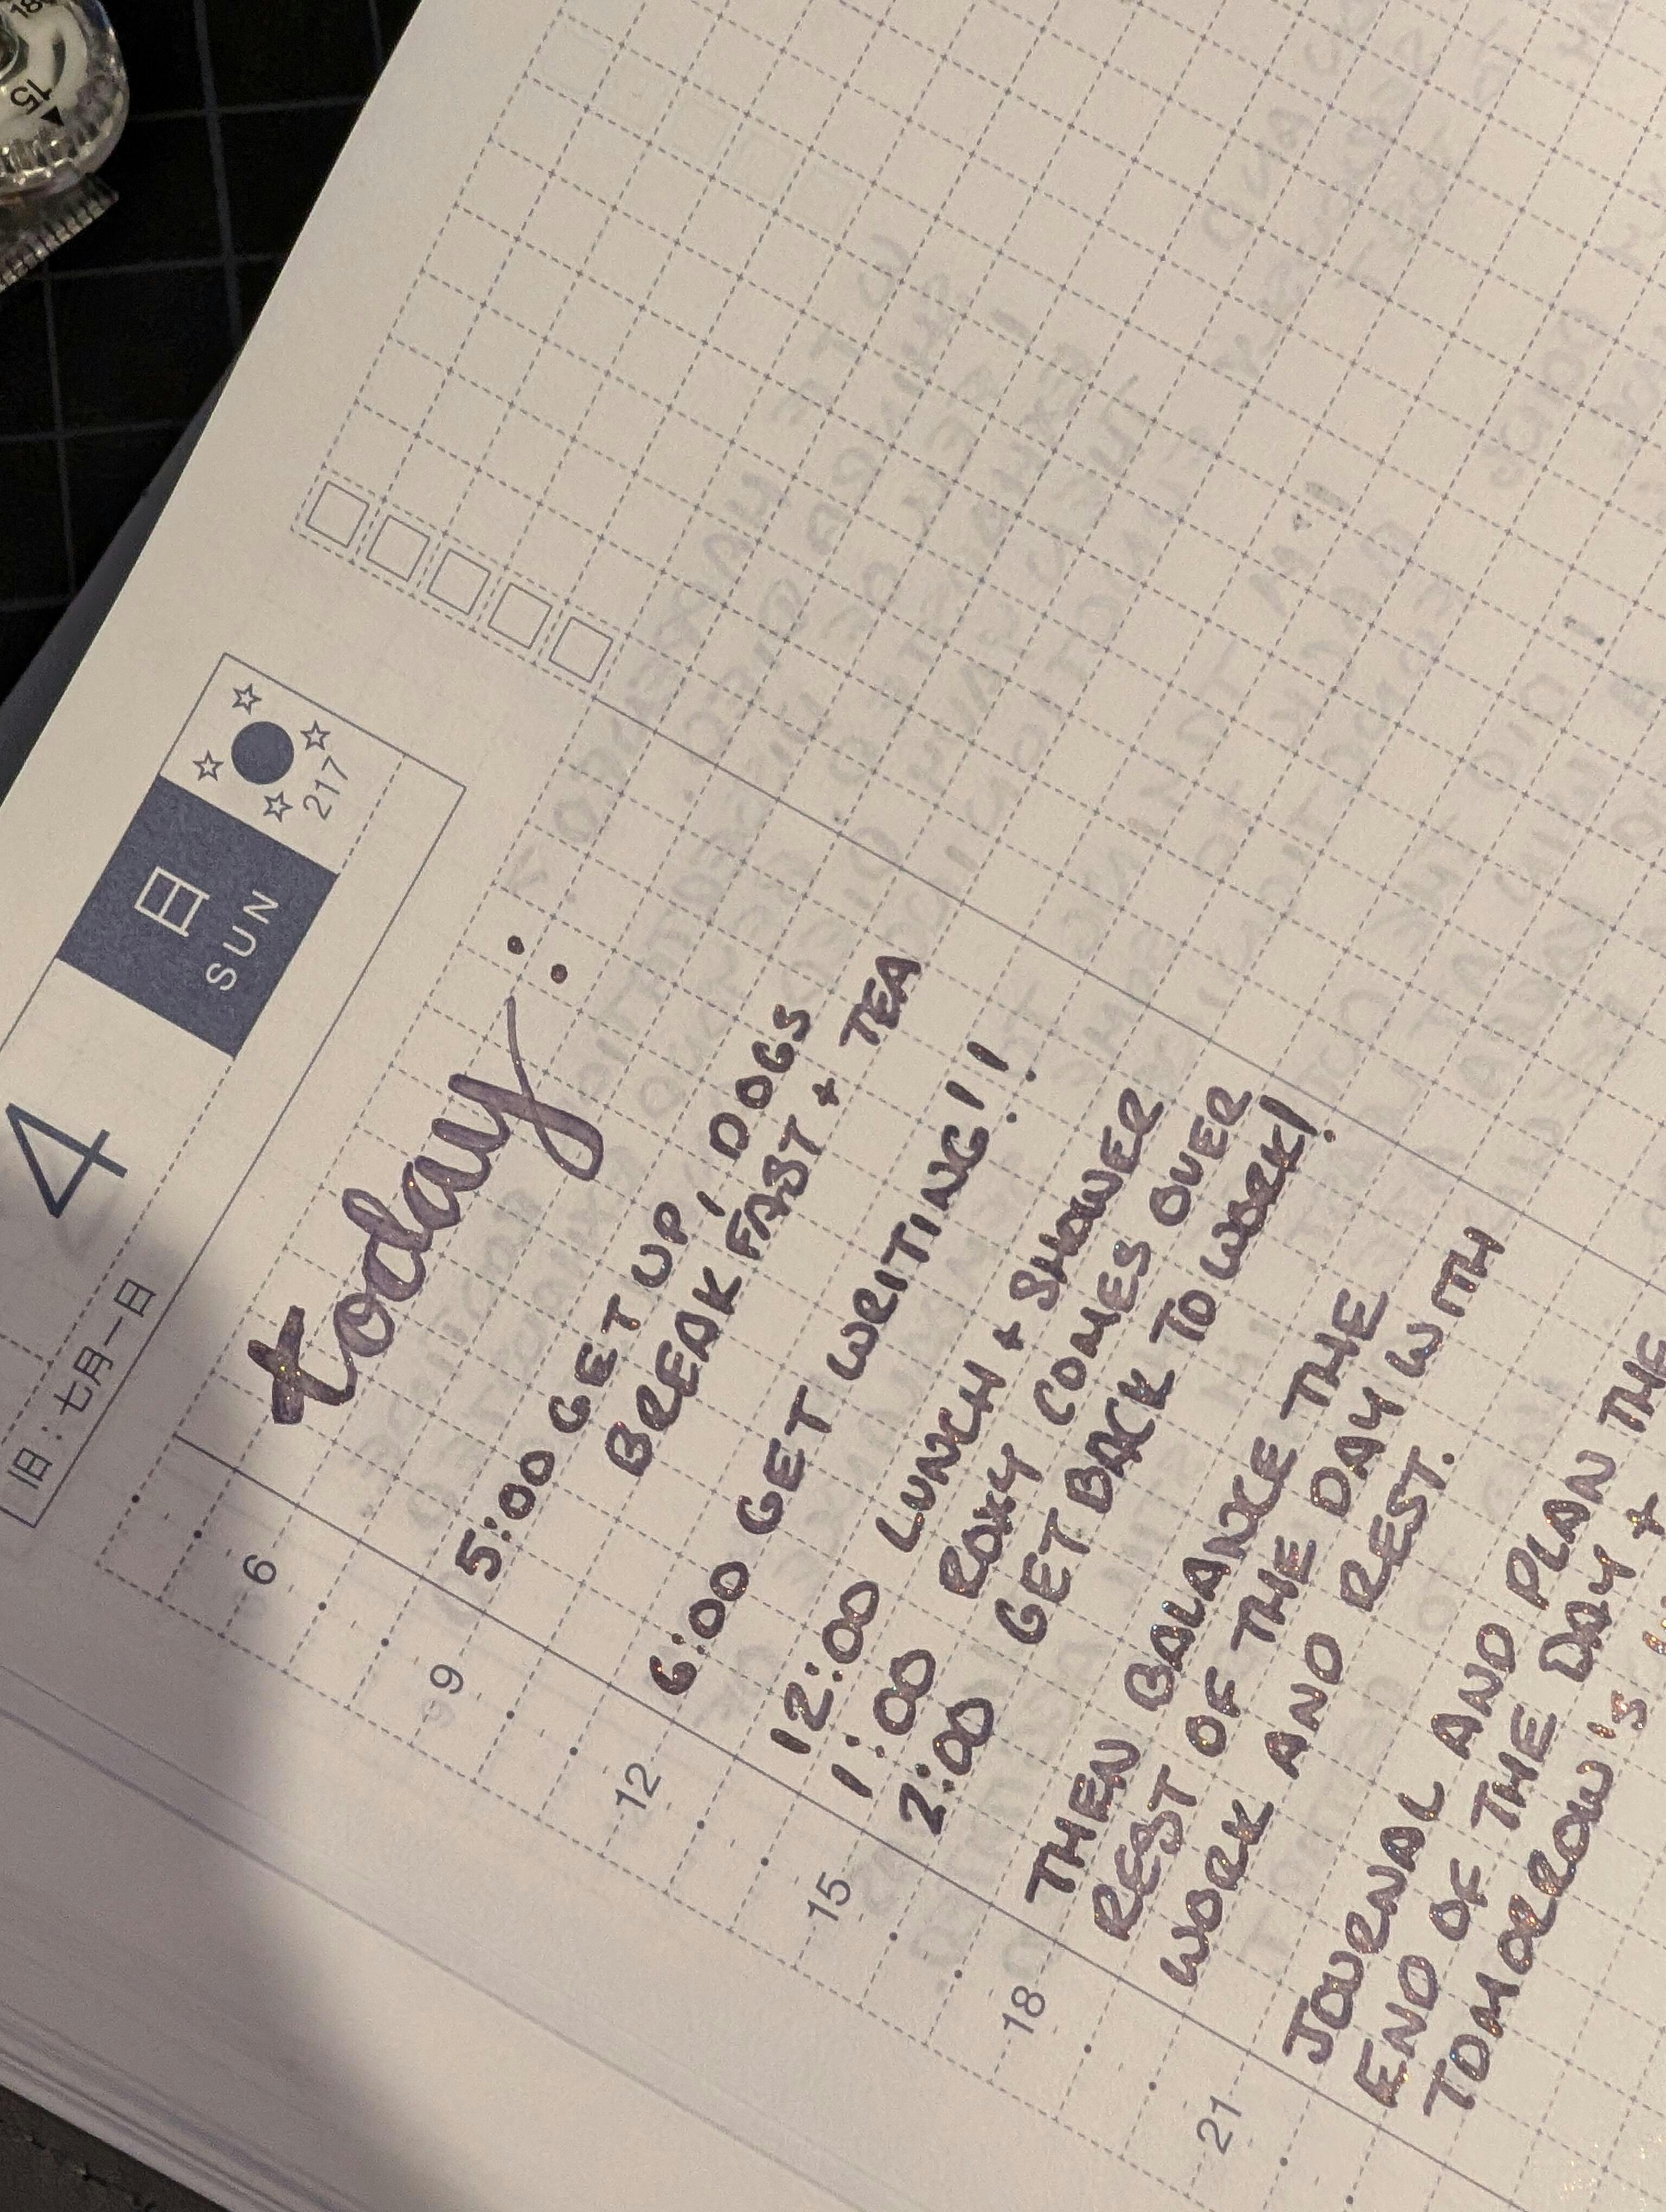 4
日
SUN
217
旧:七月一日
today:
5:00 GET UP, DOGS
BREAKFAST + TEA
6:00 GET WRITING!!
12:00 LUNCH + SHOWER
1:00 ROXY COMES OVER
2:00 GET BACK TO WORK!
THEN BALANCE THE
REST OF THE DAY WITH
WORK AND REST.
JOURNAL AND PLAN THE
END OF THE DAY +
TOMORROW'S
6
9
12
15
18
21
15